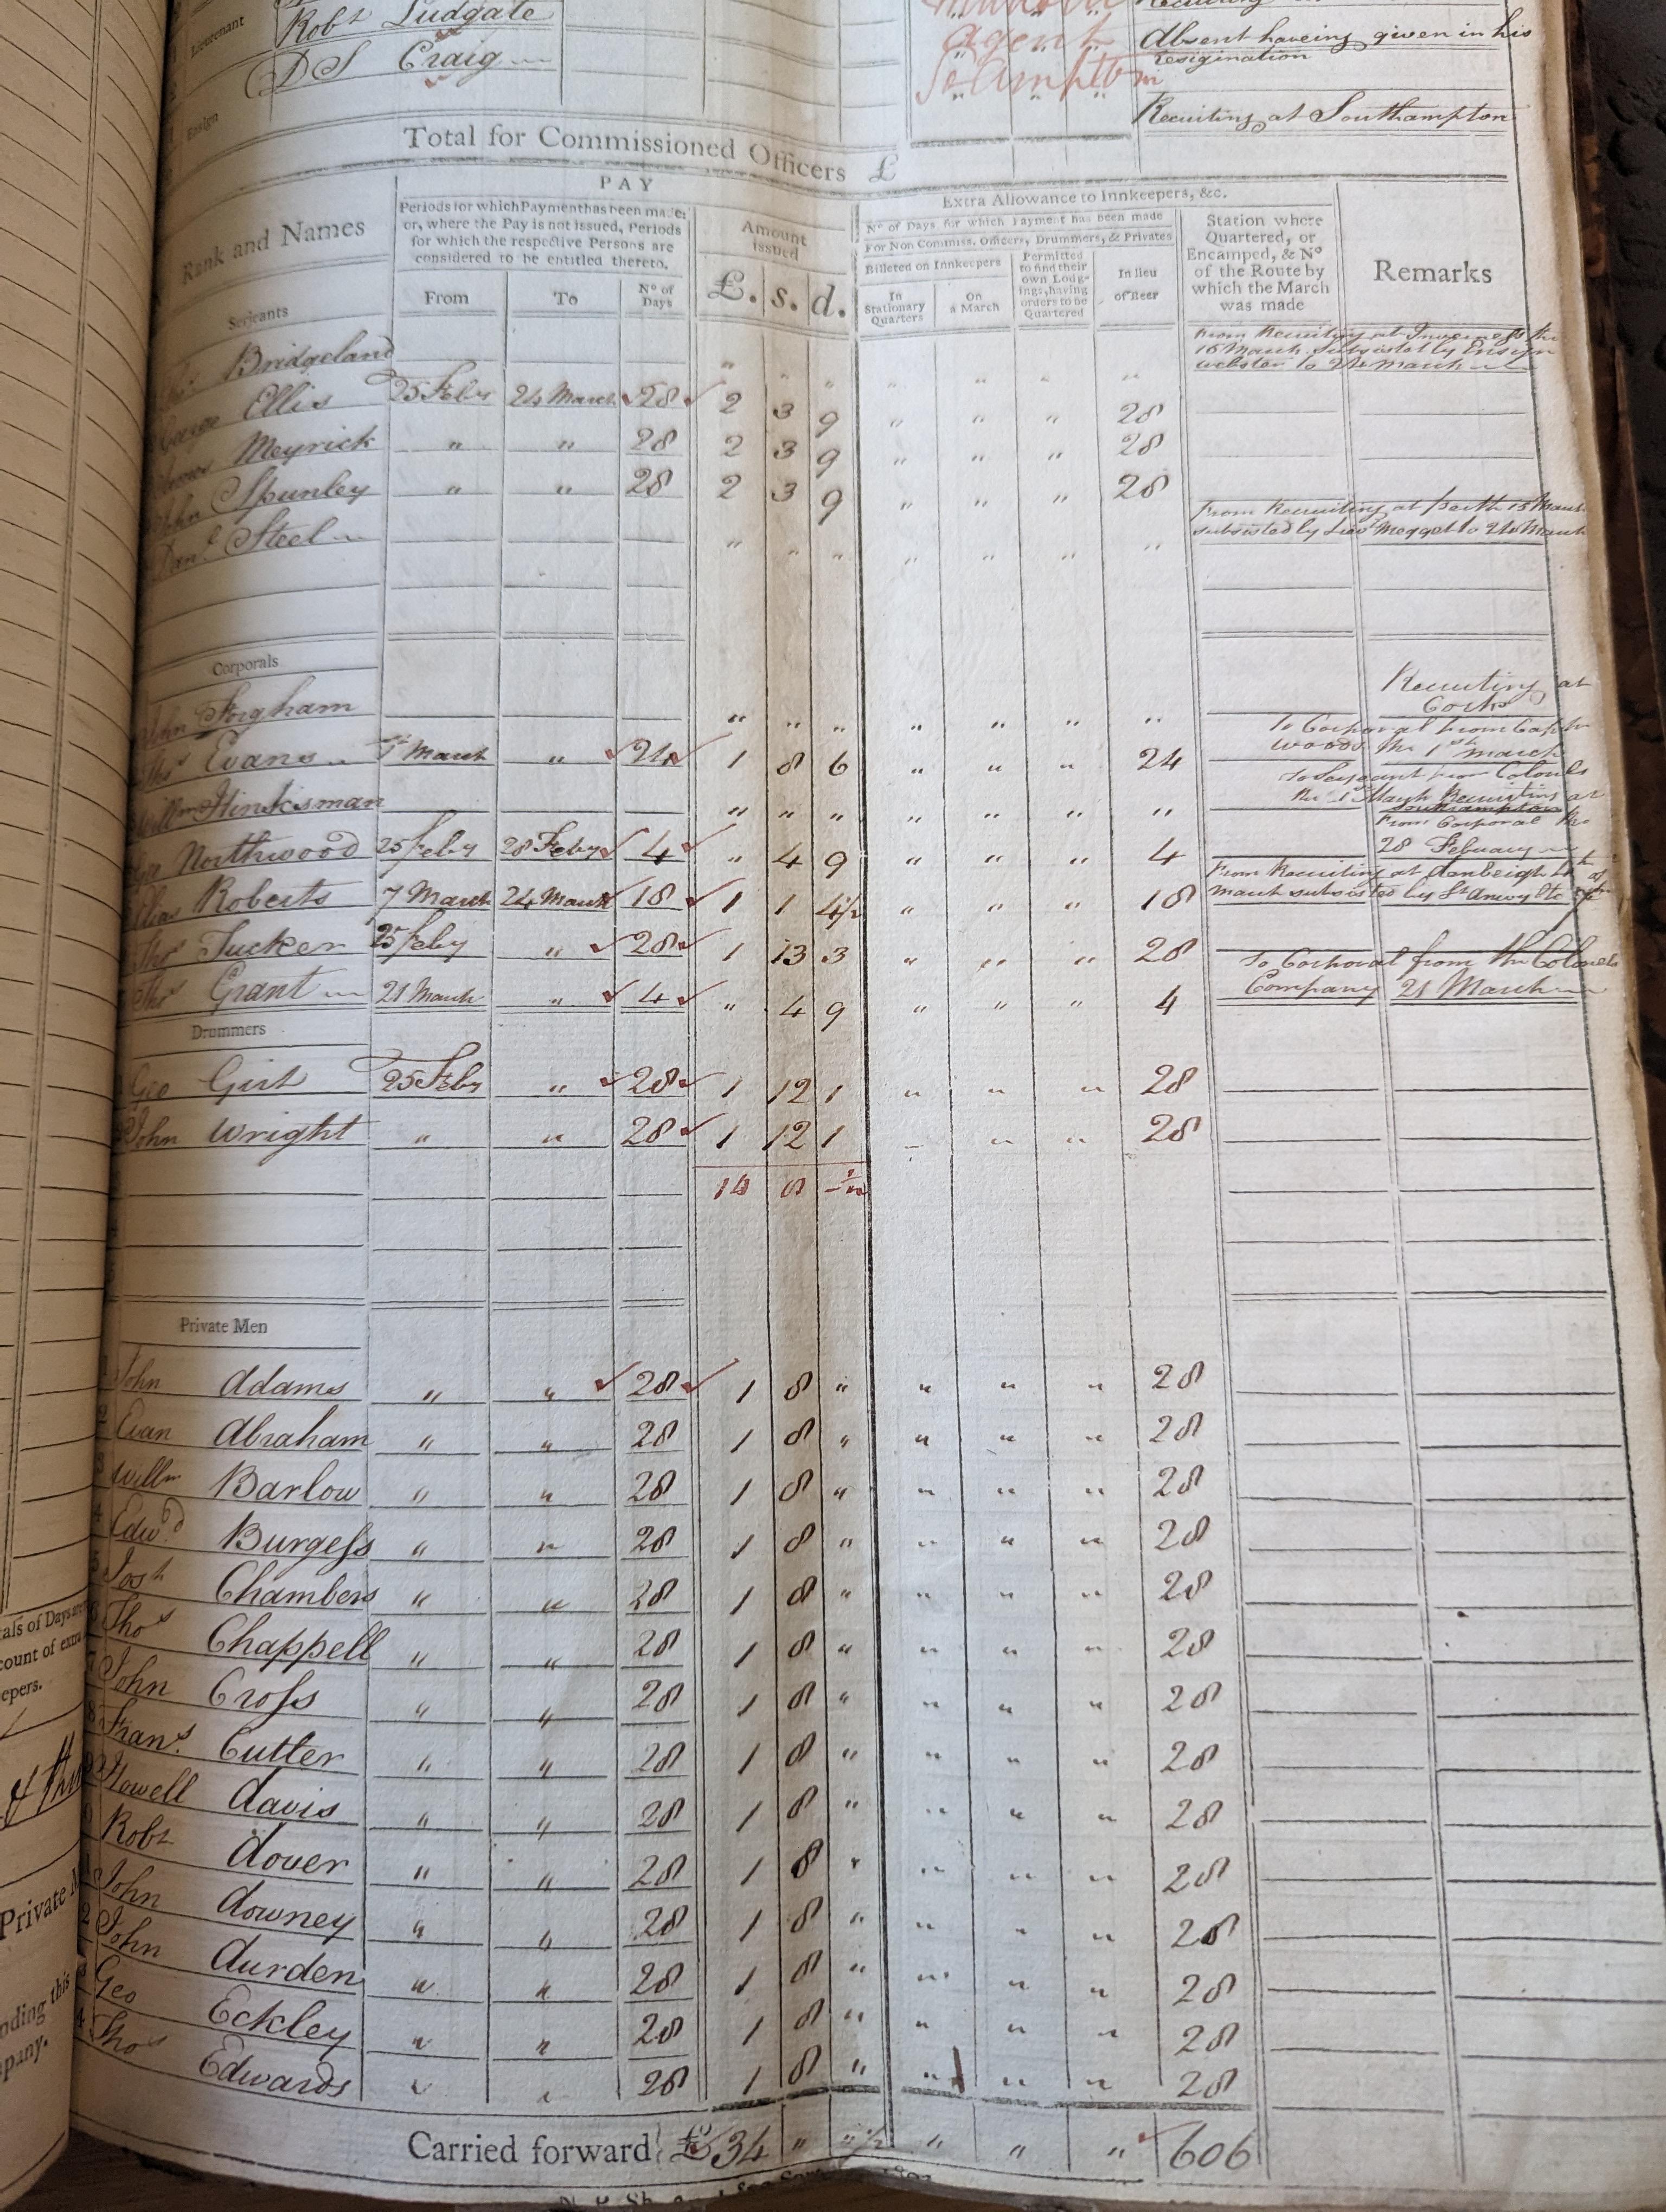 Lieutenant
Robt Ludgate
Agent
Absent haveing given in his
resignation
DS Craig
Ensign
Recruiting at Southampton
Total for Commissioned Officers £
Rank and Names
PAY
Periods for which Payment has been made;
or, where the Pay is not issued, Periods
for which the respective Persons are
considered to be entitled thereto.
From To No of Days
Amount issued
£. s. d.
Extra Allowance to Innkeepers, &c.
No of Days for which Payment has been made
For Non Commiss. Officers, Drummers, & Privates
Billeted on Innkeepers
In Stationary Quarters
On a March
Permitted to find their own Lodgings, having orders to be Quartered
In lieu of Beer
Station where Quartered, or Encamped, & No of the Route by which the March was made
Remarks
Serjeants
From Recruiting at Inverness the
16 March Subsisted by Ensign
Webster to 24 March
Bridgeland " " " " " " "
George Ellis 25 Feby 24 March 28 2 3 9 " " " 28
James Meyrick " " 28 2 3 9 " " " 28
John Spunley " " 28 2 3 9 " " " 28
From Recruiting at Perth 15 March
subsisted by Lieut Megget to 24 March
Danl Steel " " " " " " "
Corporals
Recruiting at
Cork
John Forgham " " " " " " "
To Corporal from Captn
Woods the 1st March
Thos Evans 1st March " 24 1 8 6 " " " 24
To Serjeant from Colonels
the 1st March Recruiting at
Southampton
Willm Hinksman " " " " " " "
From Corporal the
28 February
Geo Northwood 25 Feby 28 Feby 4 " 4 9 " " " 4
From Recruiting at Denbeigh
March subsisted by Lt
Elias Roberts 7 March 24 March 18 1 1 4½ " " " 18
Thos Tucker 25 Feby " 28 1 13 3 " " " 28
To Corporal from the Colonels
Company 21 March
Thos Grant 21 March " 4 " 4 9 " " " 4
Drummers
Geo Girt 25 Feby " 28 1 12 1 " " " 28
John Wright " " 28 1 12 1 " " " 28
14 8 -½
Private Men
1 John Adams " " 28 1 8 " " " " 28
2 Evan Abraham " " 28 1 8 " " " " 28
3 Willm Barlow " " 28 1 8 " " " " 28
4 Edwd Burgess " " 28 1 8 " " " " 28
5 Josh Chambers " " 28 1 8 " " " " 28
6 Thos Chappell " " 28 1 8 " " " " 28
7 John Cross " " 28 1 8 " " " " 28
8 Frans Cutler " " 28 1 8 " " " " 28
9 Howell Davis " " 28 1 8 " " " " 28
Robt Dover " " 28 1 8 " " " " 28
John Downey " " 28 1 8 " " " " 28
2 John Durden " " 28 1 8 " " " " 28
Geo Eckley " " 28 1 8 " " " " 28
4 Thos Edwards " " 28 1 8 " " " " 28
Carried forward £34 " "½ " " " 606